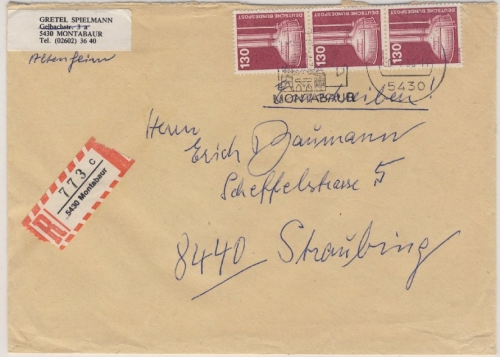 GRETEL SPIELMANN
Gelbachstr. 3 a
5430 MONTABAUR
Tel. (02602) 36 40
Altenheim
DEUTSCHE BUNDESPOST
130
DEUTSCHE BUNDESPOST
130
DEUTSCHE BUNDESPOST
130
MONTABAUR
5430
schreiben!
Herrn
Erich Baumann
Scheffelstrasse 5
8440 Straubing
R
773 c
5430 Montabaur